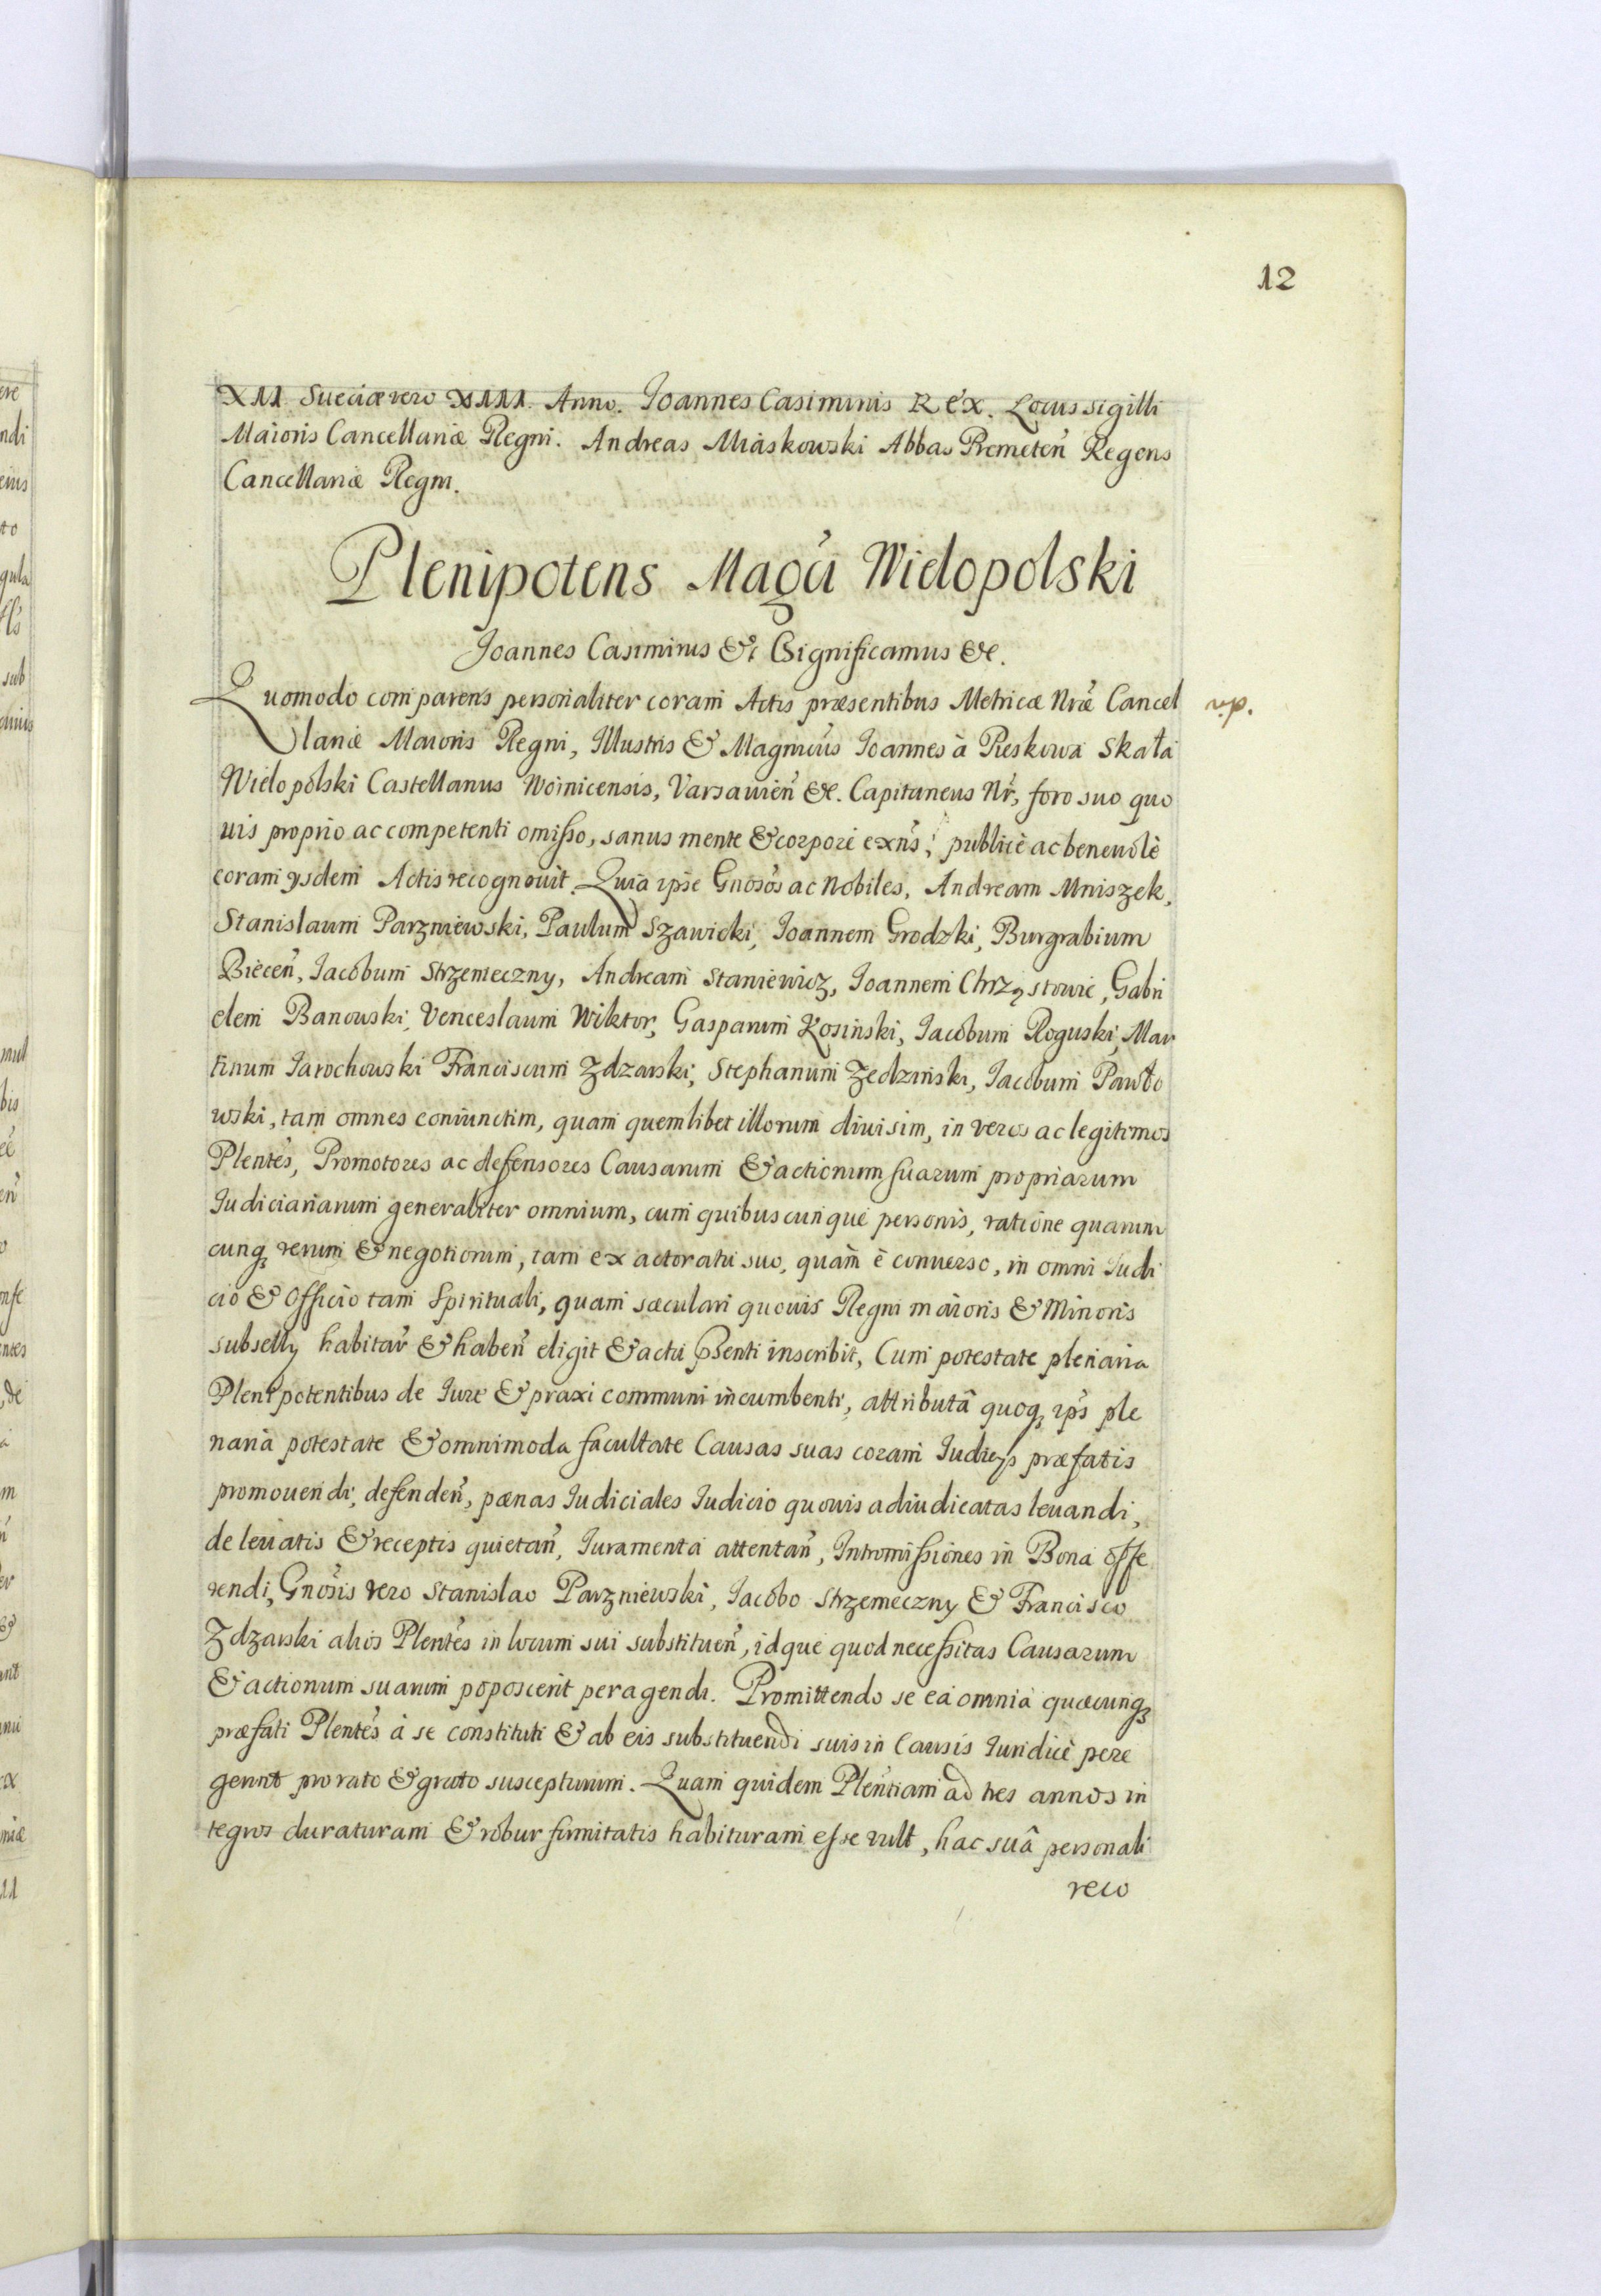 12
XII Sueciæ vero XIII. Anno. Joannes Casimirus Rex. Locus sigilli
Maioris Cancellariæ Regni. Andreas Miaskowski Abbas Premeteñ Regens
Cancellariæ Regni.
Plenipotens Magci Wielopolski
Joannes Casimirus &c Significamus &c.
Quomodo comparens personaliter coram Actis præsentibus Metricæ Nræ Cancel
lariæ Maioris Regni, Illustris & Magnicus Joannes à Pieskowa Skała
Wielopolski Castellanus Woinicensis, Varsavieñ &c. Capitaneus Nr, foro suo quo
uis proprio ac competenti omisso, sanus mente & corpore exns, publicè ac beneuolè
coram ysdem Actis recognouit. Quia ipse Gnosos ac Nobiles, Andream Mniszek,
Stanislaum Parzniewski, Paulum Szawicki, Joannem Grodzki, Burgrabium
Bieceñ, Jacobum Strzemeczny, Andream Staniewicz, Joannem Chrząstowic, Gabri
elem Banowski, Venceslaum Wiktor, Gasparum Kosiński, Jacobum Roguski, Mar
tinum Jarochowski Franciscum Zdzarski, Stephanum Zedzinski, Jacobum Pawło
wski, tam omnes coniunctim, quam quemlibet illorum diuisim, in veros ac legitimos
Plentes, Promotores ac defensores Causarum & actionum suarum propriarum
Iudiciariarum generaliter omnium, cum quibuscunque personis, ratione quarum
cunq rerum & negotiorum, tam ex actoratu suo, quam è conuerso, in omni Iudi
cio & Officio tam Spirituali, quam sæculari quouis Regni maioris & Minoris
subselly habitañ & habeñ eligit & actu psenti inscribit, Cum potestate plenaria
Plenipotentibus de Iure & praxi communi incumbenti, attributâ quoq ips ple
naria potestate & omnimoda facultate Causas suas coram Iudicys præfatis
promouendi, defendeñ, pænas Iudiciales Iudicio quouis adiudicatas leuandi,
de leuatis & receptis quietañ, Iuramenta attentañ, Intromissiones in Bona offe
rendi, Gnosis vero Stanislao Parzniewski, Jacobo Strzemeczny & Francisco
Zdzarski alios Plentes in locum sui substitueñ, idque quod necessitas Causarum
& actionum suarum poposcerit peragendi. Promittendo se ea omnia quæcunq
præfati Plentes à se constituti & ab eis substituendi suis in Causis Iuridicè pere
gerint pro rato & grato suscepturum. Quam quidem Plentiam ad tres annos in
tegros duraturam & robur firmitatis habituram esse vult, hac suâ personali
reco